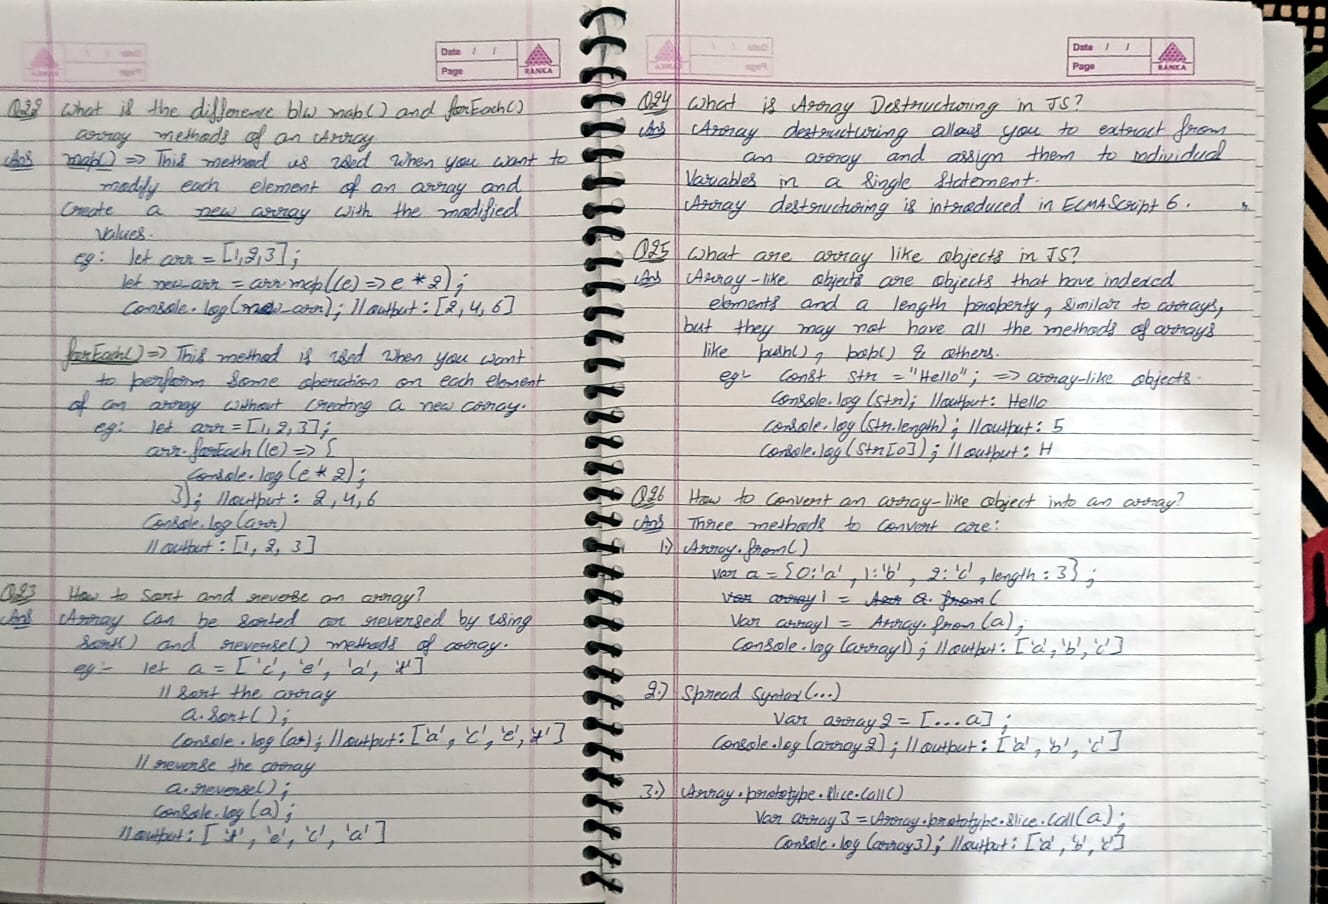 Date / /
Page
RANKA
Q22 What is the difference b/w map() and forEach()
array methods of an Array
Ans map() => This method is used when you want to
modify each element of an array and
create a new array with the modified
values.
eg: let arr = [1,2,3];
let new-arr = arr.map((e) => e * 2);
Console.log(new-arr); //output: [2,4,6]
forEach() => This method is used when you want
to perform some operation on each element
of an array without creating a new array.
eg: let arr = [1,2,3];
arr.forEach((e) => {
Console.log(e * 2);
}); //output: 2,4,6
Console.log(arr)
//output: [1, 2, 3]
Q23 How to sort and reverse an array?
Ans Array can be sorted or reversed by using
sort() and reverse() methods of array.
eg:- let a = ['c', 'e', 'a', 't']
// sort the array
a.sort();
Console.log(a); //output: ['a', 'c', 'e', 't']
// reverse the array
a.reverse();
Console.log(a);
//output: ['t', 'e', 'c', 'a']
Date / /
Page
RANKA
Q24 What is Array Destructuring in JS?
Ans Array destructuring allows you to extract from
an array and assign them to individual
Variables in a Single Statement.
Array destructuring is introduced in ECMAScript 6.
Q25 What are array like objects in JS?
Ans Array-like objects are objects that have indexed
elements and a length property, similar to arrays,
but they may not have all the methods of arrays
like push(), pop() & others.
eg:- Const str = "Hello"; => array-like objects.
Console.log(str); //output: Hello
Console.log(str.length); //output: 5
Console.log(str[0]); //output: H
Q26 How to convert an array-like object into an array?
Ans Three methods to convert are:
1.) Array.from()
Var a = {0:'a', 1:'b', 2:'c', length: 3};
Var array1 = a.from(
Var array1 = Array.from(a);
Console.log(array1); //output: ['a','b','c']
2.) Spread Syntax(...)
Var array2 = [...a];
Console.log(array2); //output: ['a', 'b', 'c']
3.) Array.prototype.slice.call()
Var array3 = Array.prototype.slice.call(a);
Console.log(array3); //output: ['a', 'b', 'c']